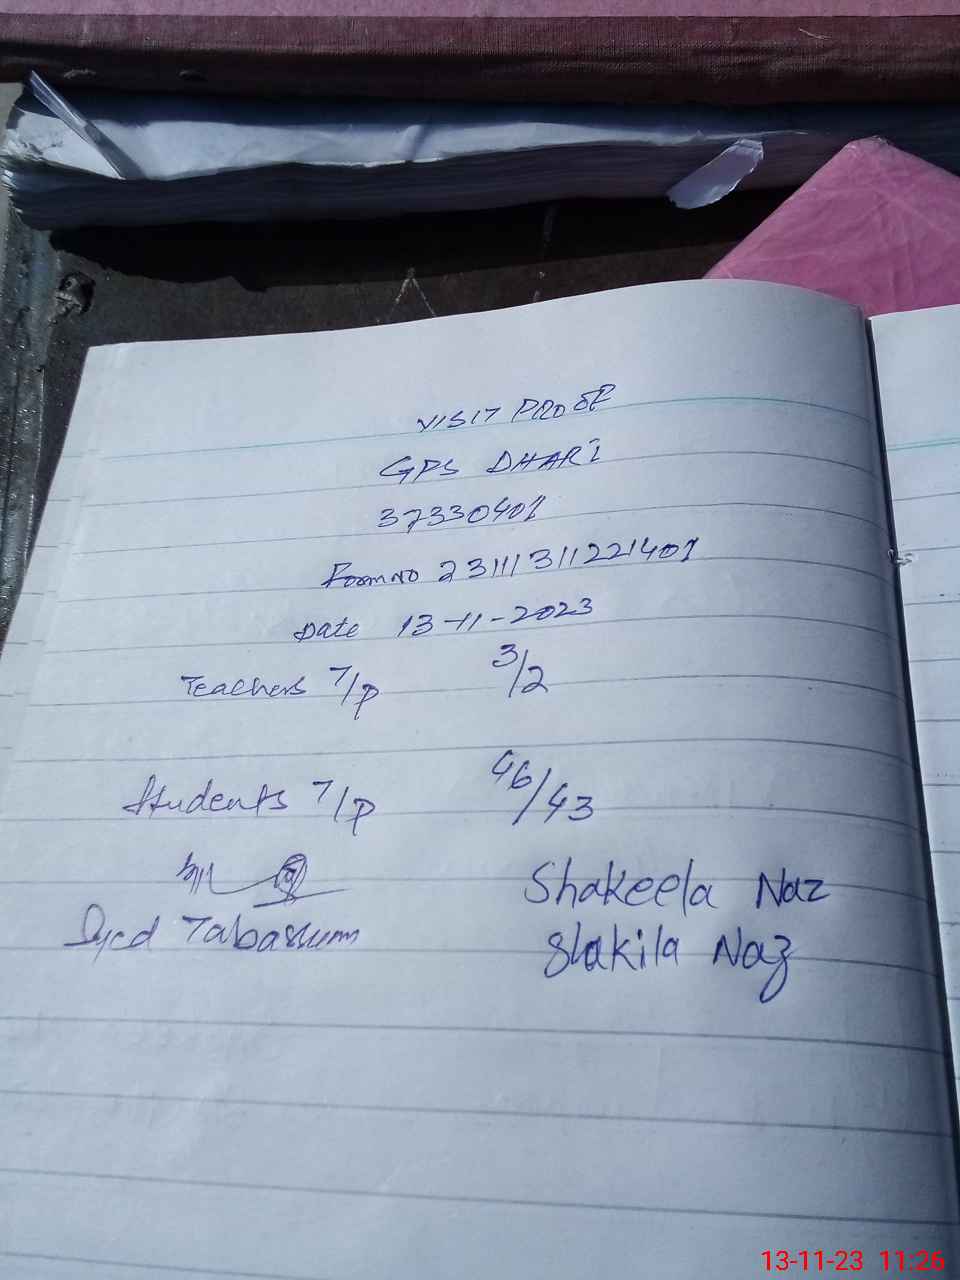 VISIT PROOF
GPS DHARI
37330401
Form no 23111311221401
Date 13-11-2023
Teachers T/P 3/2
Students T/P 46/43
Syed Tabassum
Shakeela Naz
Shakila Naz
13-11-23 11:26